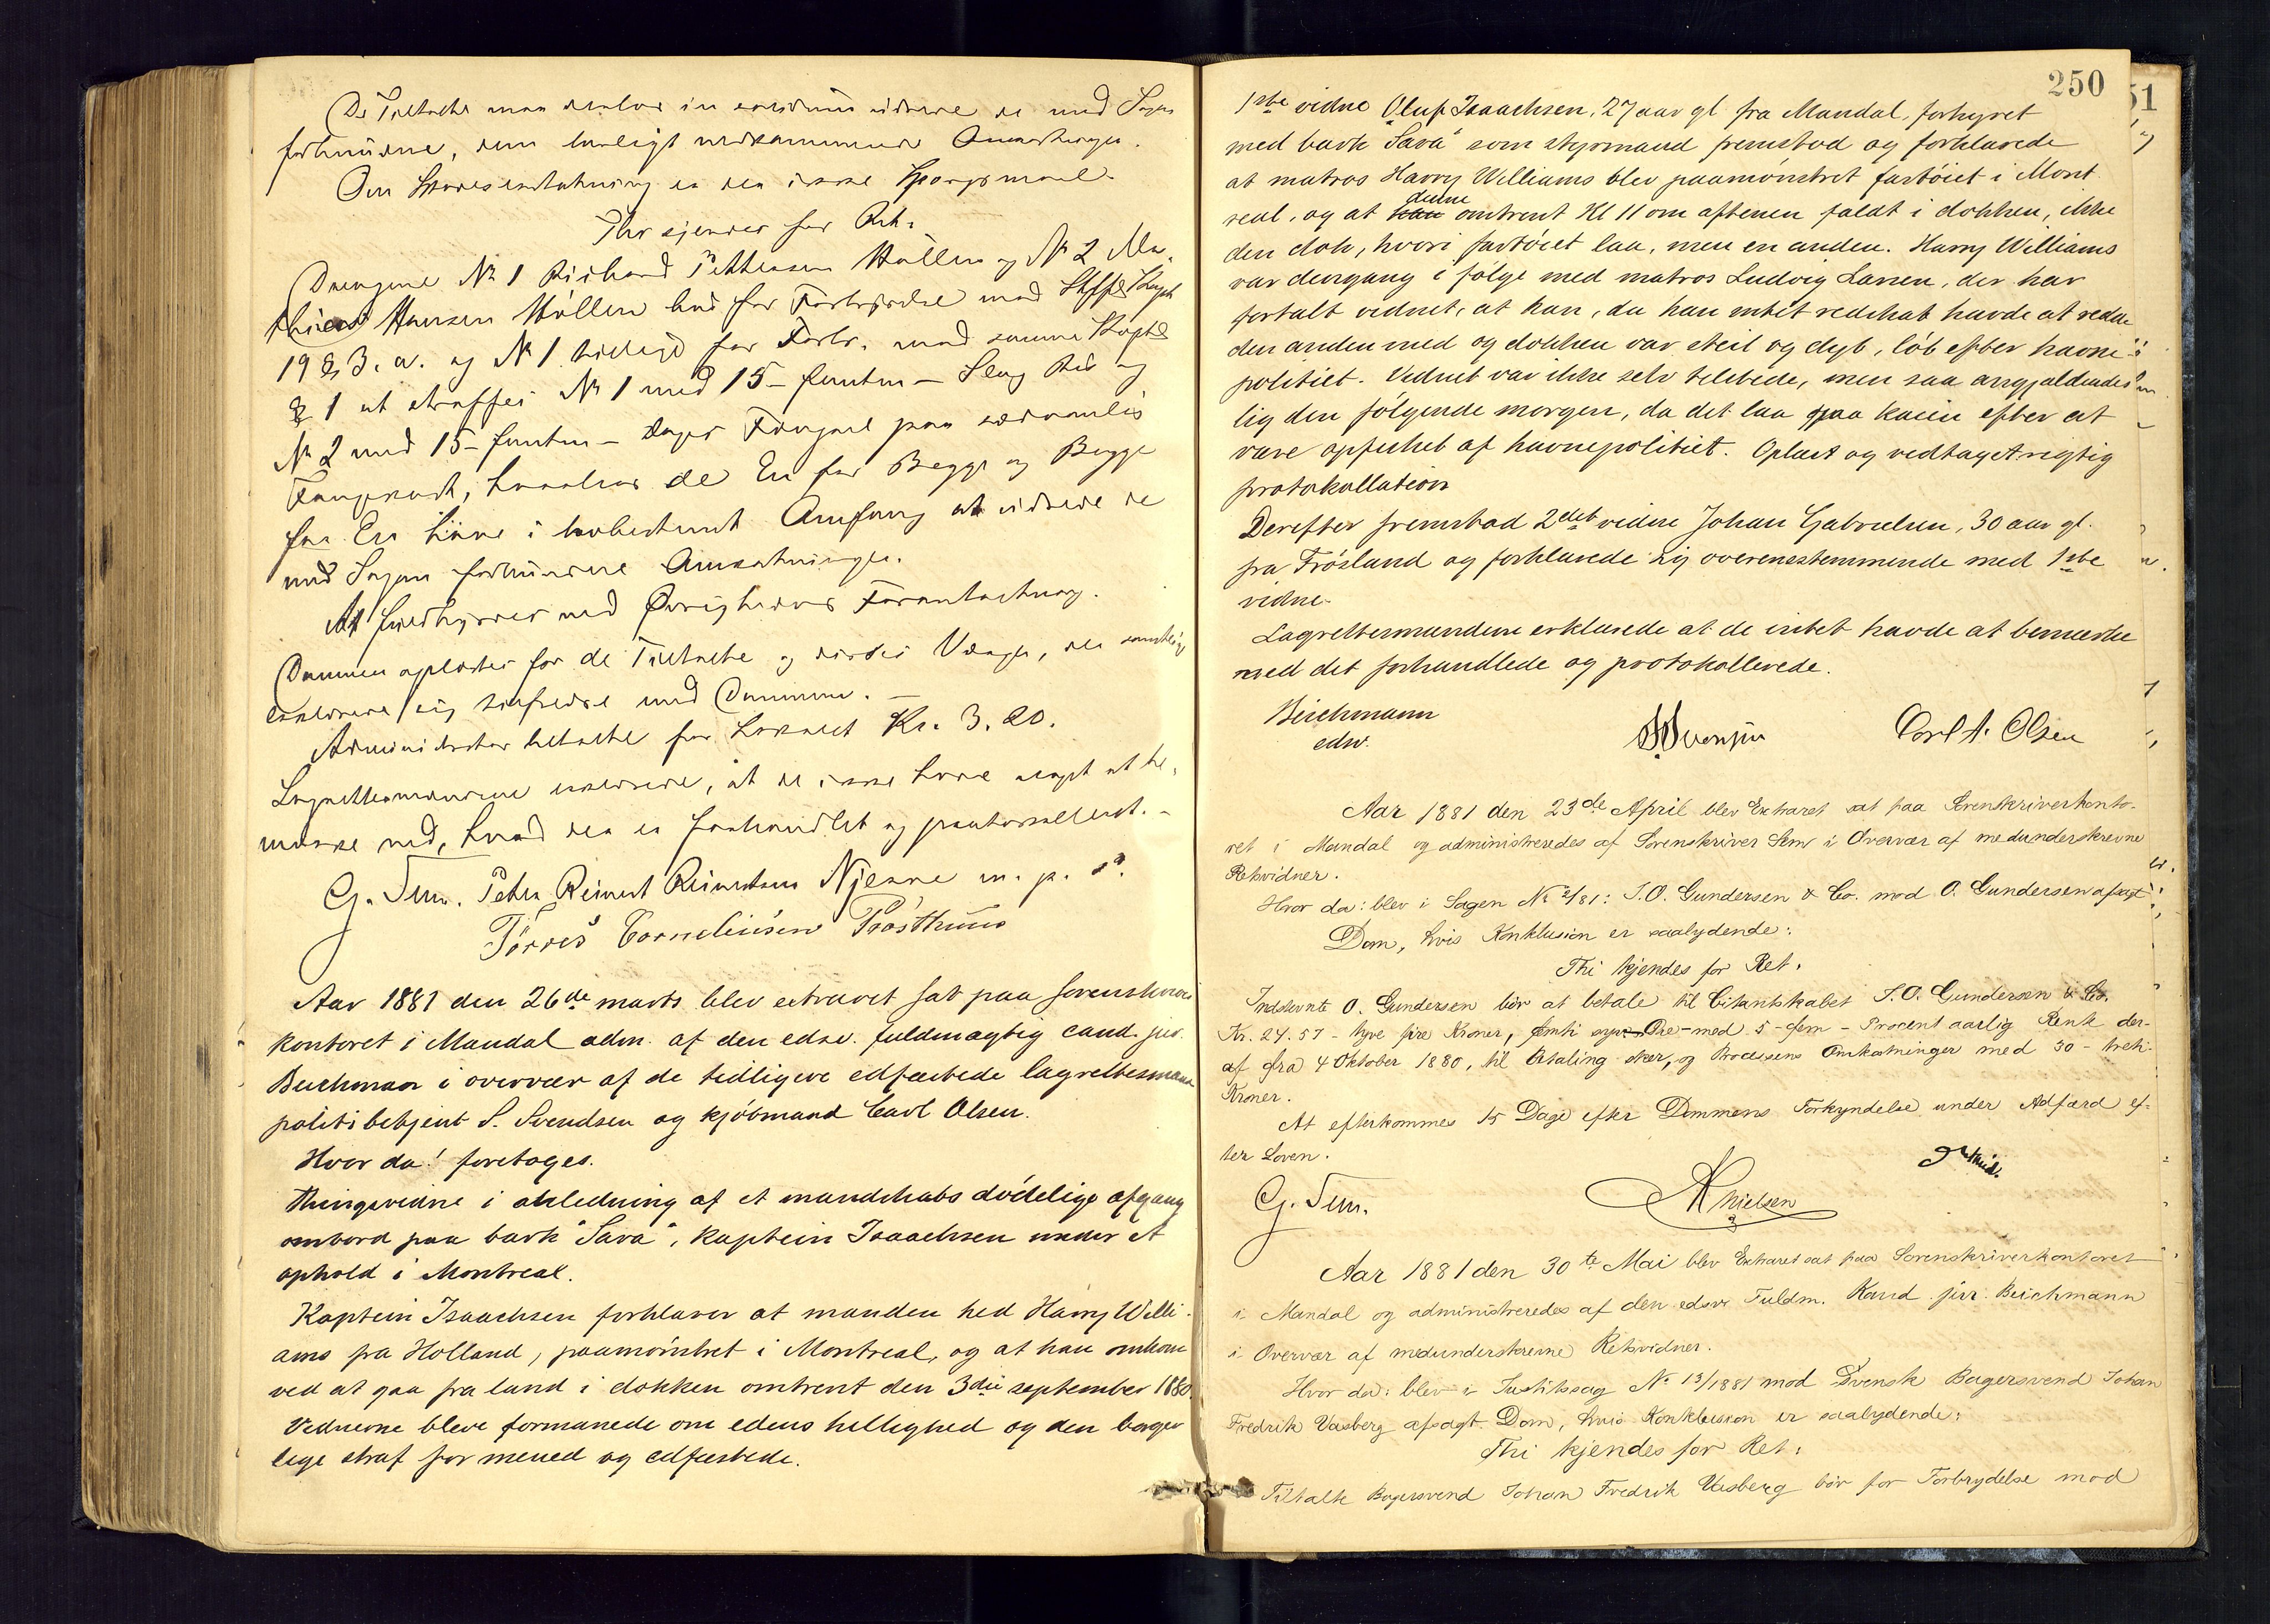 De Tiltalte maa derhos in solidum udrede de med Sagen
forbundne, som lovligt vedkommende Omkostninger.
Om Skadeserstatning er der ikke Spørgsmaal.
Thi kjendes for Ret:
Drengene No 1 Richard Pettersen Møllen og No 2 Ma-
thias Hansen Møllen bør for Forbrydelse mod Strfl Kapt
19 § 3. a. og No 1 tillige for Forbr. mod samme Kaptl
§ 1 at straffes No 1 med 15 - femten - Slag Ris og
No 2 med 15 - femten - Dages Fængsel paa sædvanlig
Fangekost, hvorhos de En for Begge og Begge
for En have i lovbestemt Omfang at udrede de
med Sagen forbundne Omkostninger.
At fuldbyrdes ved Øvrighedens Foranstaltning.
Dommen oplæstes for de Tiltalte og disses Værger, der samtlig
erklærede sig tilfredse med Dommen. -
Administrator betalte for Lokalet Kr. 3.20.
Lagrettesmændene erklærede, at de ikke havde noget at be-
mærke ved, hvad der er forhandlet og protokolleret. -
G. Sem. Peder Reinert Reinertsen Njerve m. p. P.
Tørres Corneliusen Trosthuus
Aar 1881 den 26de marts blev extraret sat paa sorenskriver
kontoret i Mandal adm. af den edsv. fuldmægtig cand. jur.
Beichman i overvær af de tidligere edfæstede lagrettesmænd
politibetjent S. Svendsen og kjøbmand Carl Olsen.
Hvor da! foretoges.
Thingsvidne i anledning af et mandskabs dødelige afgang
ombord paa bark "Sava", kaptein Isaachsen under et
ophold i Montreal.
Kaptein Isaachsen forklarer at manden hed Harry Willi-
ams fra Holland, paamønstret i Montreal, og at han omkom
ved at gaa fra land i dokken omtrent den 3die september 1880.
Vidnerne bleve formanede om edens hellighed og den borger
lige straf for mened og edfæstede.
250
51
1ste vidne Oluf Isaachsen, 27 aar gl fra Mandal, forhyret
med bark "Sava" som styrmand fremstod og forklarede
at matros Harry Williams blev paamønstret fartøiet i Mont
real, og at han denne omtrent Kl 11 om aftenen faldt i dokken, ikke
den dok, hvori fartøiet laa, men en anden. Harry Williams
var dengang i følge med matros Ludvig Larsen, der har
fortalt vidnet, at han, da han intet redskab havde at redde
den anden med og dokken var steil og dyb, løb efter havne-
politiet. Vidnet var ikke selv tilstede, men saa angjældendes
lig den følgende morgen, da det laa paa kaien efter at
være opfisket af havnepolitiet. Oplæst og vedtaget rigtig
protokollation
Derefter fremstod 2det vidne Johan Gabrielsen, 30 aar gl.
fra Frøsland og forklarede sig overensstemmende med 1ste
vidne.
Lagrettesmændene erklærede at de intet havde at bemærke
ved det forhandlede og protokollerede.
Beichmann
edsv.
S Svensen
Carl A. Olsen
Aar 1881 den 23de April blev Extraret sat paa Sorenskriverkonto-
ret i Mandal og administreredes af Sorenskriver Sem i Overvær af medunderskrevne
Retsvidner.
Hvor da: blev i Sagen No 2/81: J. O. Gundersen & Co. mod O. Gundersen afsagt
Dom, hvis Konklusion er saalydende:
Thi kjendes for Ret:
Indstevnte O. Gundersen bør at betale til Citantskabet J. O. Gundersen & Co.
Kr. 24.57 - tyve fire Kroner, femti syv Øre - med 5 - fem - Procent aarlig Rente der-
af fra 4 Oktober 1880, til Betaling sker, og Processens Omkostninger med 30 - treti-
Kroner.
At efterkommes 15 Dage efter Dommens Forkyndelse under Adfærd ef-
ter Loven.
G. Sem.
A Nielsen
Aar 1881 den 30te Mai blev Extraret sat paa Sorenskriverkontoret
i Mandal og administreredes af den edsv. Fuldm. Kand. jur. Beichmann
i Overvær af medunderskrevne Retsvidner.
Hvor da: blev i Justitssag No 13/1881 mod Svensk Bagersvend Johan
Fredrik Vasberg afsagt Dom, hvis Konklusion er saalydende:
Thi kjendes for Ret:
Tiltalte Bagersvend Johan Fredrik Vasberg bør for Forbrydelse mod